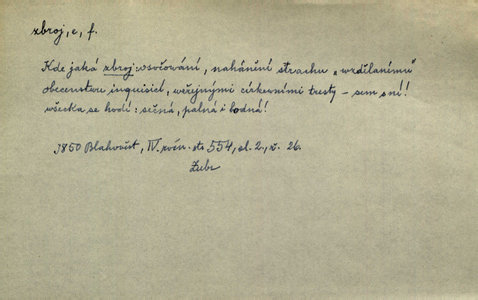 zbroj, e, f.
Kde jaká zbroj: osočování, nahánění strachu „vzdělanému“
obecenstvu inquisicí, veřejnými církevními tresty – sem s ní!
všecka se hodí: sečná, palná i bodná!
1850 Blahověst, IV. roční. str. 554, sl. 2., ř. 26.
Zubr